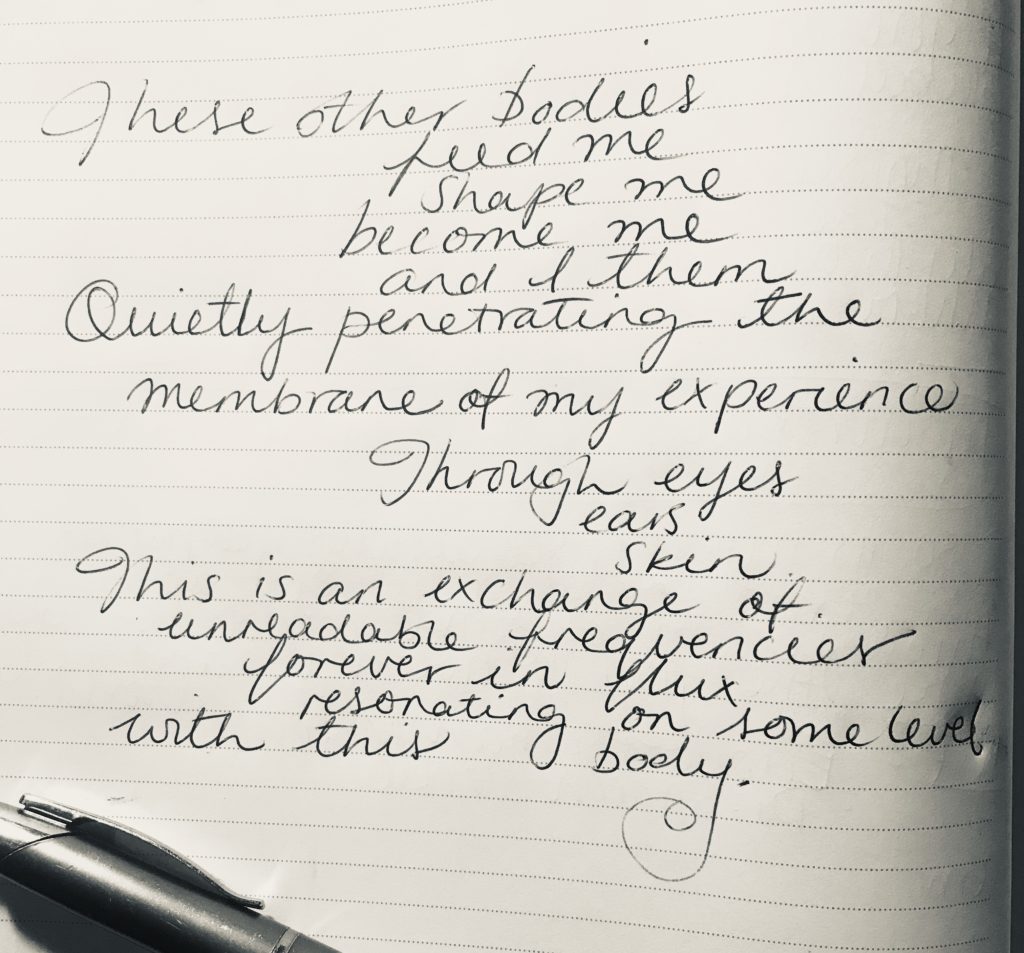 These other bodies
feed me
shape me
become me
and I them
Quietly penetrating the
membrane of my experience
Through eyes
ears
skin.
This is an exchange of
unreadable frequencies
forever in flux
resonating on some level
with this body.